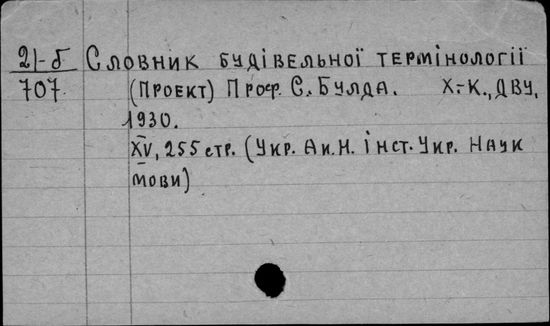 21-б Словник будівельної термінології
707 (Проект) Проф. С. Булда. Х.-К., ДВУ,
1930.
XV, 255 стр. (Укр. Ак.Н. Інст. Укр. Наук
мови)